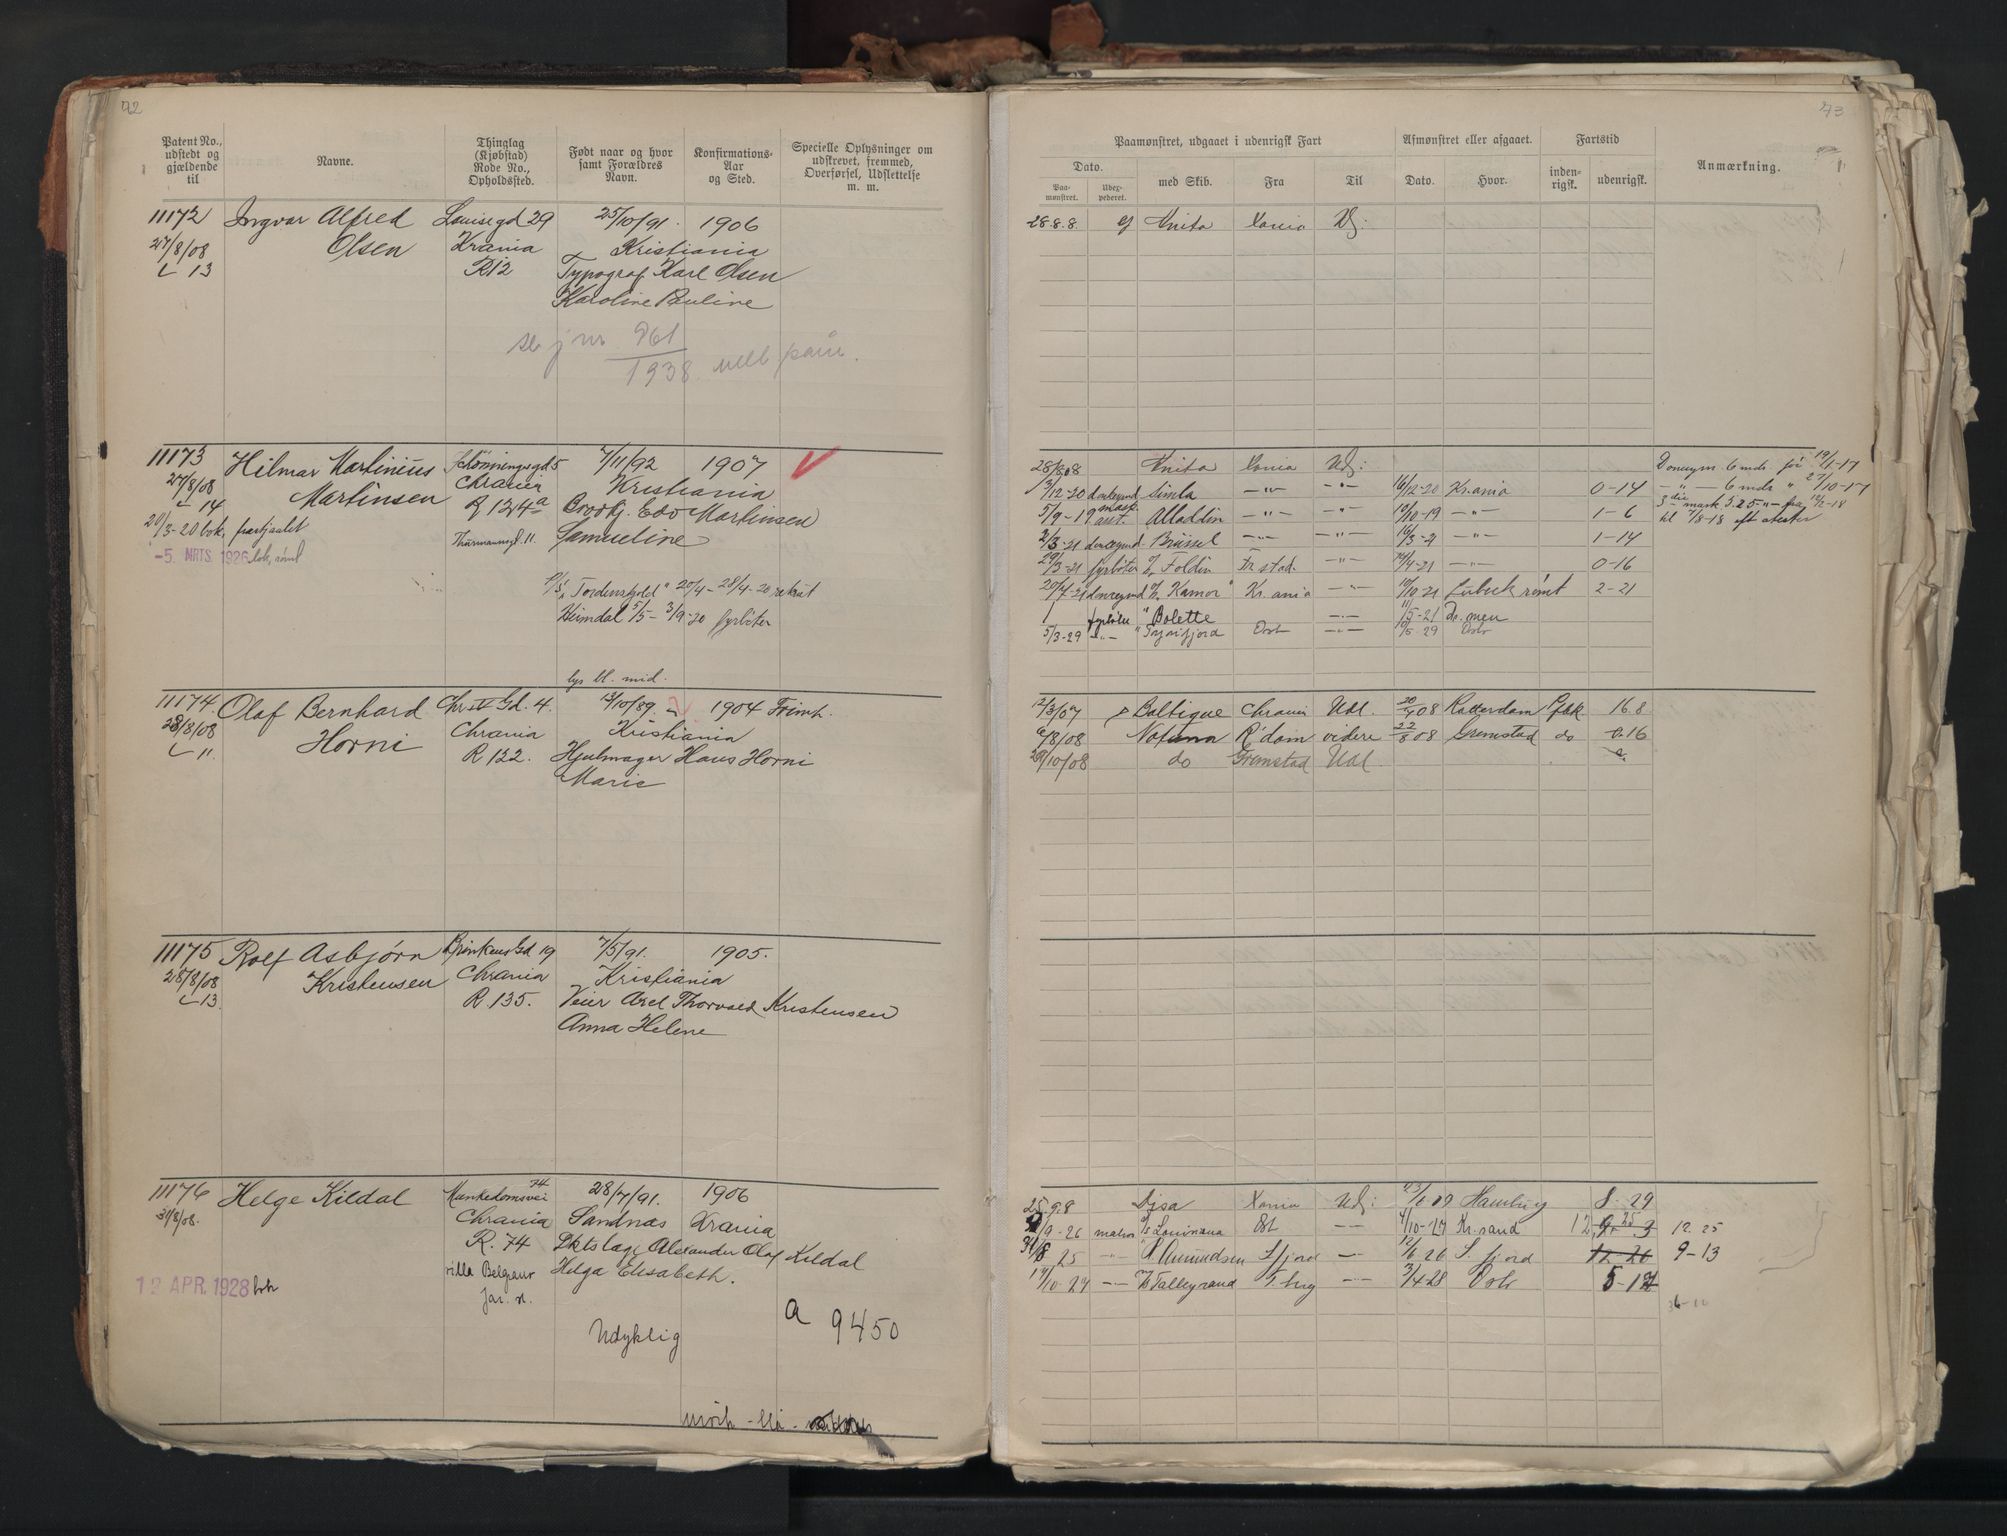 72
Patent No., udstedt og gjældende til
Navne.
Thinglag (Kjøbstad) Rode No., Opholdssted.
Født naar og hvor samt Forældres Navn.
Konfirmations-Aar og Sted.
Specielle Oplysninger om udskrevet, fremmed, Overførsel, Udslettelse m. m.
11172 Ingvar Alfred Louisegd 29 25/10/91. 1906
27/8/08 Olsen Krania Kristiania
13 R12 Typograf Karl Olsen
Karoline Pauline
se jnr 961
1938
11173 Hilmar Martinius Schönningsgd 5 7/11/92 1907 V
27/8/08 Martinsen Chrania Kristiania
14 R 124a Edv Martinsen
20/3-20 bok Samueline
-5. MRTS. 1926 bok, rømt
"Tordenskjold" 20/4 - 28/4-20 rekrut
Heimdal 5/5 - 3/9-20 fyrbøter
lys bl. mid.
11174 Olaf Bernhard Gd. 4. 13/10/89. 1904 Frimh.
28/8/08 Horni Chrania Kristiania
11 R 122. Hjulmager Hans Horni
Marie
11175 Rolf Asbjørn Gd 19 7/5/91. 1905.
28/8/08 Kristensen Chrania Kristiania
13 R. 135. Veier Axel Thorvald Kristensen
Anna Helene
11176 Helge Kildal Munkedamsvei 74 28/7/91. 1906
31/8/08. Chrania Sandnæs Krania
R. 74 Dktslæge Alexander Olaf Kildal
villa Helga Elisabeth.
12 APR. 1928 bok
Jar. st.
a 9450
Udyktig
73
Paamønstret, udgaaet i udenrigsk Fart
Afmønstret eller afgaaet.
Fartstid
Anmærkning.
Dato.
Paa-mønstret.
Udex-pederet.
med Skib.
Fra
Til
Dato.
Hvor.
inden-rigsk.
udenrigsk.
28.8.8. Anita Xania Udl:
28/8 08 Anita Xania Udl: Donkeym 6 mdr. før 19/1-17
3/12-20 donkeymd Simla -"- -"- 16/12-20 Kr.ania 0-14 -"- 6 mdr " 27/10-17
5/9-19 mask. ass. Alladdin -"- -"- 10/10-19 -"- 1-6
2/3-21 donkeymd Brüssel -"- -"- 16/3-21 -"- 1-14 til 7/8-18
29/3-21 fyrbøter Foldin Fr.stad -"- 14/4-21 0-16
20/7-21 donkeymd "Kamor" Kr.ania -"- 10/10 21 Lübeck rømt 2-21
fyrbøter "Bolette -"- 11/5-21 Dr.men
5/3-29 -"- "Tyrifjord Oslo -"- 10/5-29 Oslo
12/3/07 Baltique Chrania Udl. 20/7 08 Rotterdam 16.8
6/8/08 R'dam videre 22/8 08 Grimstad do 0.16
29/10/08 do Grimstad Udl
25.9.8 Disa Xania Udl: 09 Hamburg 8-29
/9-26 matros Louisiana Øst -"- 4/10-27 Kr.sand 12 12.25
31/8 25 -"- R Amundsen S fjord -"- 12/6 26 S. fjord 12-26 9-13
17/10-27 -"- Talleyrand G.brg -"- 3/4 28 Oslo 5-12